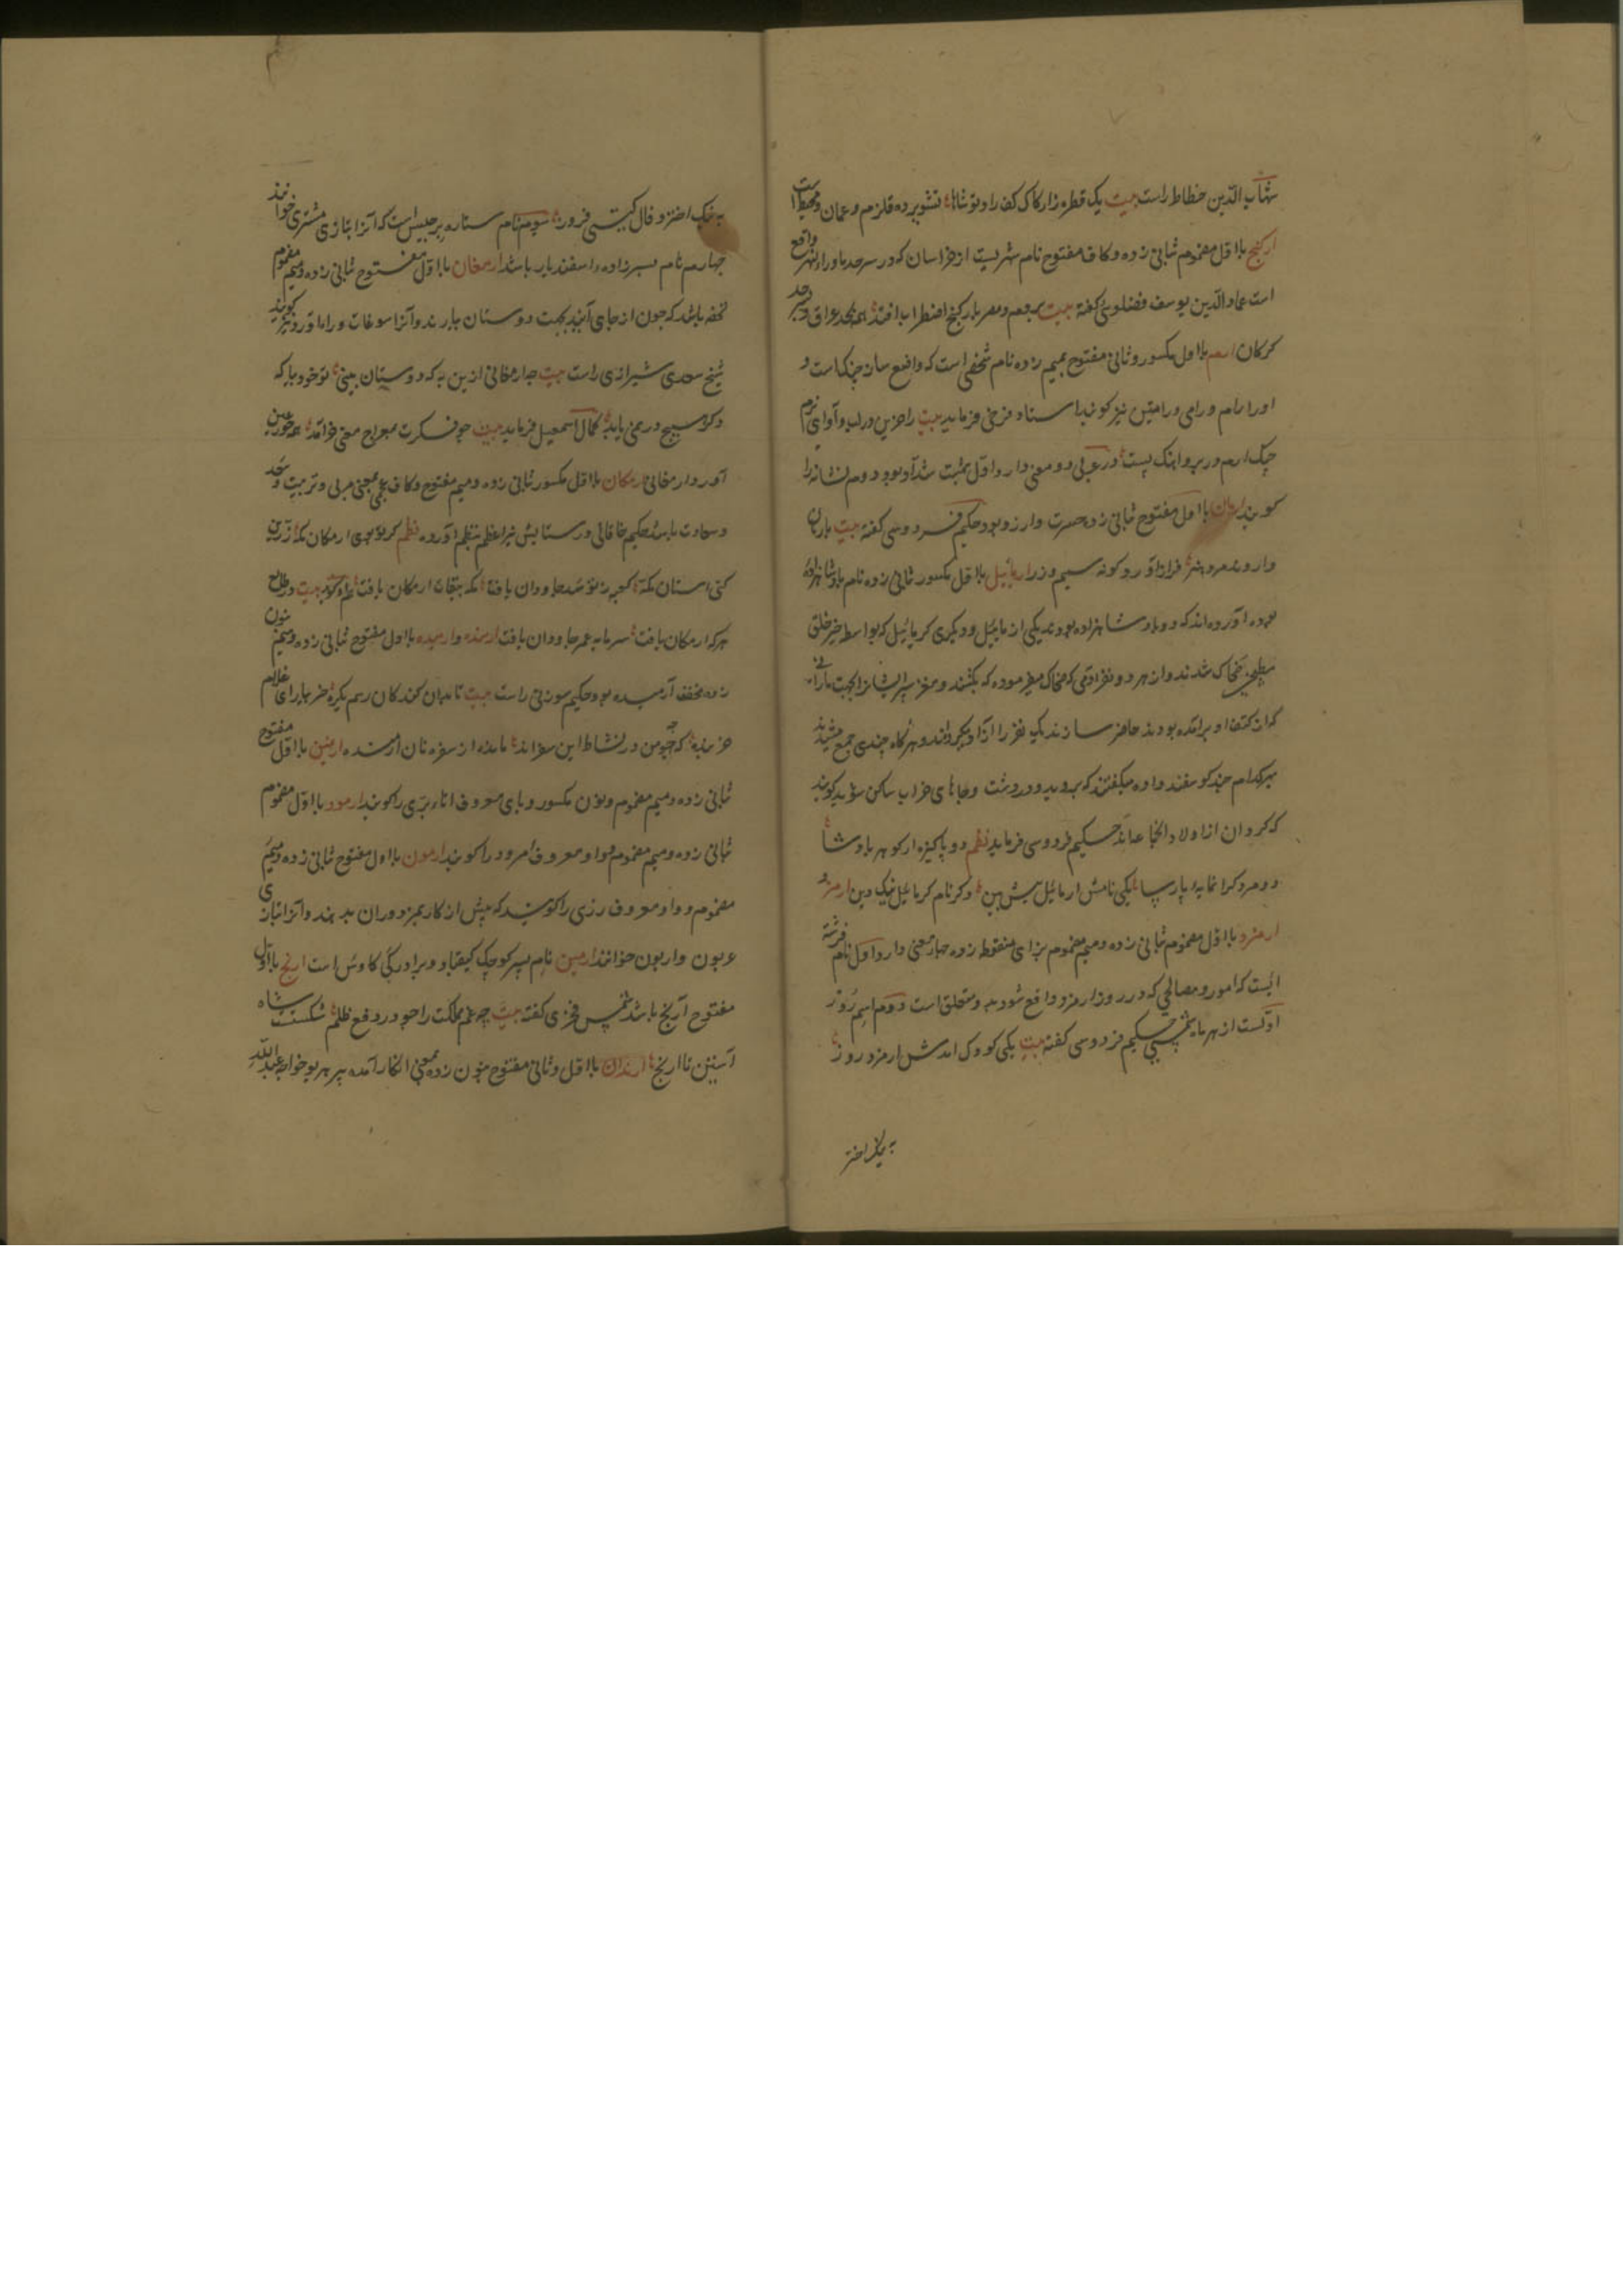 شهاب الدین خطاط راست بیت یک قطره زار کاک کف راد تو شاها تشویر ده قلزم و عمان و محیط است
ارکنج بااول مضموم ثبانی زده و کاف مفتوح نام شهریست از خراسان که در سرحد ماوراءالنهر واقع
است عماد الدین یوسف فضلوی گفته بیت بروم و مصر بار کنج اضطراب افتد بحد عراق و سرحد
کرکان ارم بااول مکسور و ثانی مفتوح بمیم زده نام شخصی است که واضع ساز چنک است و
اورا رام و رامی و رامتین نیز کویند استاد فرخی فرماید بیت را حزین در لب و آوای نرم
چنک ارم در بر و اینک پست در عربی دو معنی دارد اول بهشت شداد بود دوم نشانه را
کویند ارمان بااول مفتوح ثبانی زده حسرت و ارزو بود حکیم فردوسی گفته بیت بارمان
واروند مرد هنر فراز آورد کونه سیم و زر ارمائیل بااول مکسور ثبانی زده نام پادشاهزادهٔ
بوده آورده‌اند که دو پادشاهزاده بودند یکی ارمائیل و دیکری کرمائیل که بواسطه خیر خلق
مطبخی ضحاک شدند و از هر دو نفر ادمی که ضحاک میفرموده که بکشند و مغز سر ایشانرا بجهت مارانی
که از کتف او برآمده بودند حاضر سازند یک نفر را آزاد میکردند و هر کاه چندی جمع میشدند
بهر کدام چند کوسفند داده میکفتند که بروید و در دشت و جاهای خراب ساکن شوید کویند
که کردان از اولاد انجماعه‌اند حکیم فردوسی فرماید نظم دو پاکیزه از کوهر پادشا
دو مرد کرانمایه و پارسا یکی نامش ارمائیل پیش بین دکر نام کرمائیل نیک دین ارمز و
ارمزد بااول مضموم ثبانی زده و میم مضموم بزای منقوط زده چهار معنی دارد اول نام فرشته
ایست که امور و مصالحی که در روز ارمزد واقع شود بدو متعلق است دوم اسم روز
اولست از هر ماه شمسی حکیم فردوسی گفته بیت یکی کودک امدش ارمزد روز
به نیک اختر
به نیک اختر و فال کیتی فروز سوم نام ستاره برجیس است که آنرا بتازی مشتری خوانند
چهارم نام پسرزاده اسفندیار باشد ارمغان بااول مفتوح ثبانی زده و میم مضموم
تحفه باشد که چون از جای آیند بجهت دوستان بیارند و آنرا سوغات و راه‌آورد نیز کویند
شیخ سعدی شیرازی راست بیت چه ارمغانی ازین به که دوستان بینی تو خود بیا که
دکر هیچ در نمی باید کمال اسمعیل فرماید بیت چو فکرت بمعراج معنی فرا آمد همه حور عین
آورد ارمغانی ارمکان بااول مکسور ثبانی زده و میم مفتوح و کاف عجمی بمعنی مربی و تربیت و سعد
و سعادت باشد حکیم خاقانی در ستایش نیر اعظم بنظم آورده نظم
هر که ارمکان یافت سرمایه عمر جاودان یافت ارمنده و ارمیده بااول مفتوح ثبانی زده و میم بنون
زده مخفف آرمیده بود حکیم سوزنی راست بیت
خر بنده که چو من در نشاط این سفراند مانده از سفره نان ارمنده ارمنین بااول مفتوح
ثبانی زده و میم مضموم و نون مکسور و یای معروف انار بری را کویند ارمود بااول مضموم
ثبانی زده و میم مضموم و واو معروف امرود را کویند ارمون بااول مفتوح ثبانی زده و میم
مضموم و واو معروف زری را کویند که پیش از کار بمزدوران بدهند و آنرا بتازی
عربون و اربون خوانند ارمین نام پسر کوچک کیقباد و برادر کی کاوس است ارنج بااول
مفتوح آرنج باشد شمس فخری گفته بیت چه غم مملکت را چو در دفع ظلم شکست شاه
آستین تا ارنج ارندان بااول و ثانی مفتوح بنون زده بمعنی انکار آمده پیر هری خواجه عبدالله